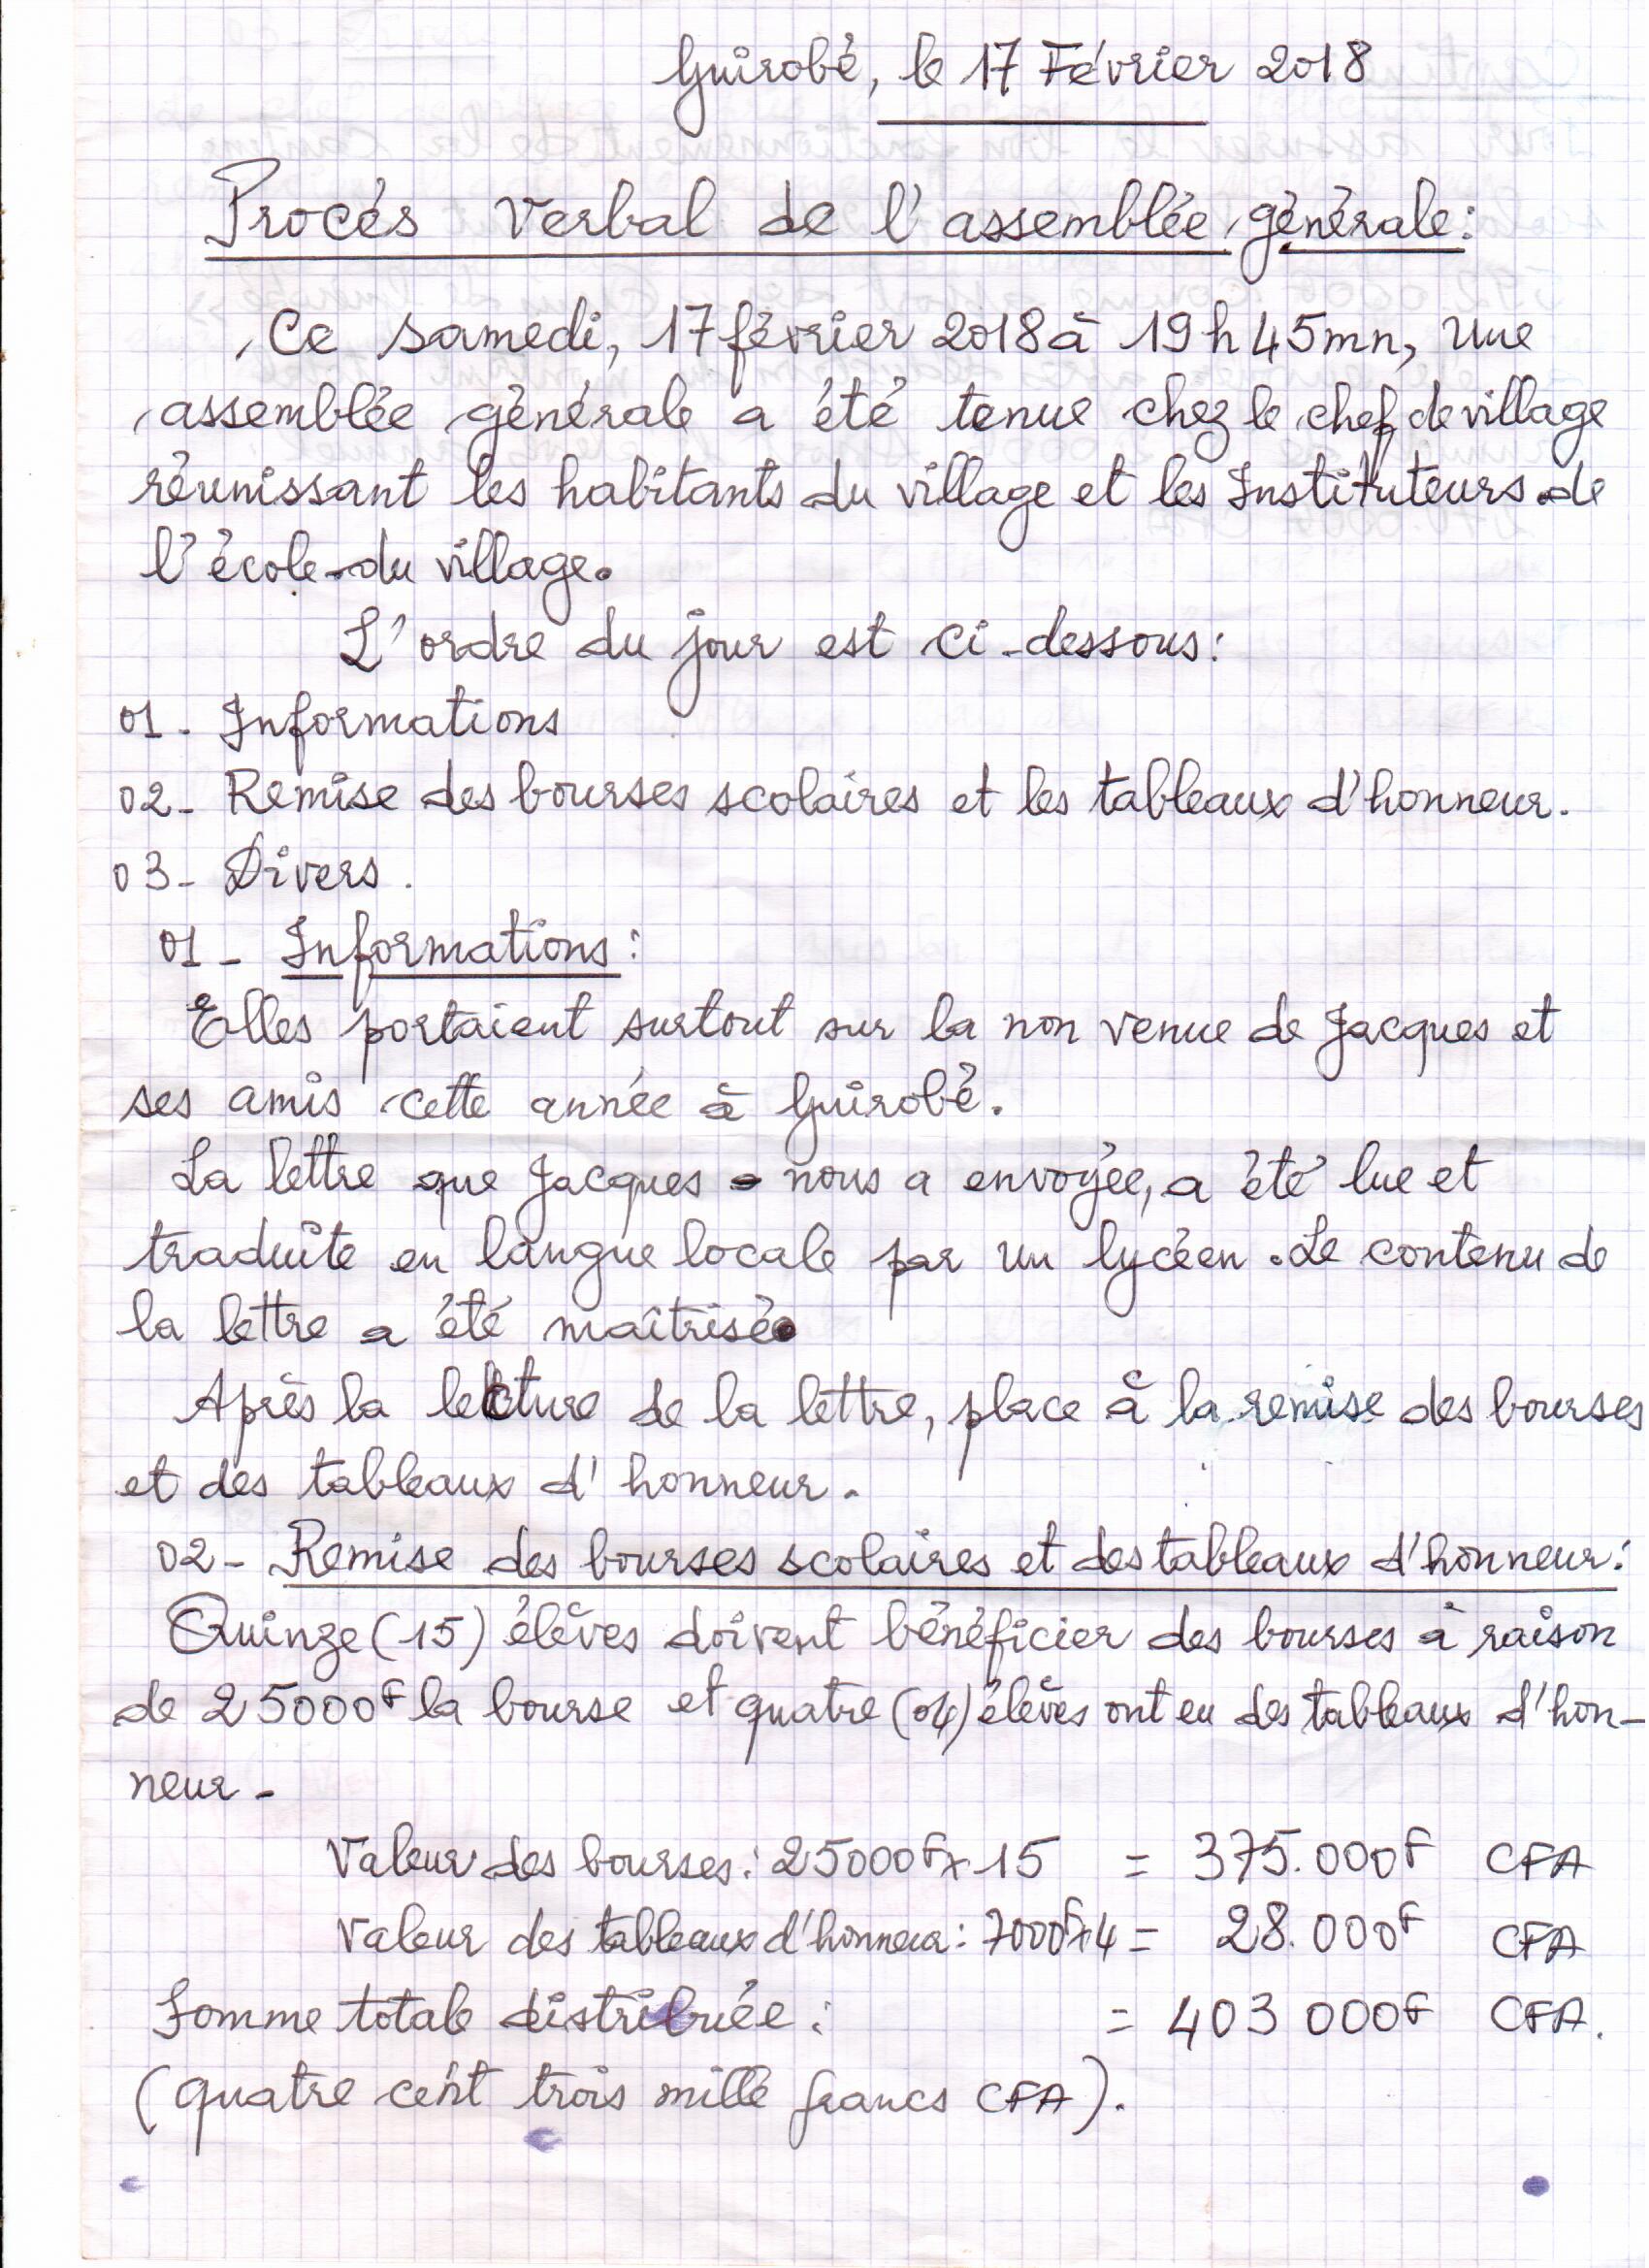 Guirobé, le 17 Février 2018
Procés Verbal de l'assemblée générale:
Ce samedi, 17 février 2018 à 19h45mn, Une
assemblée générale a été tenue chez le chef de village
réunissant les habitants du village et les Instituteurs de
l'école du village.
L'ordre du jour est ci-dessous:
01- Informations
02- Remise des bourses scolaires et les tableaux d'honneur.
03- Divers.
01- Informations:
Elles portaient surtout sur la non venue de Jacques et
ses amis cette année à Guirobé.
La lettre que Jacques nous a envoyée, a été lue et
traduite en langue locale par un lycéen. Le contenu de
la lettre a été maîtrisé.
Après la lecture de la lettre, place à la remise des bourses
et des tableaux d'honneur.
02- Remise des bourses scolaires et des tableaux d'honneur:
Quinze (15) élèves doivent bénéficier des bourses à raison
de 25000F la bourse et quatre (04) élèves ont eu des tableaux d'hon-
neur-
Valeur des bourses: 25000F x 15 = 375.000F CFA
Valeur des tableaux d'honneur: 7000F x 4 = 28.000F CFA
Somme totale distribuée: = 403 000F CFA.
(quatre cent trois mille francs CFA).